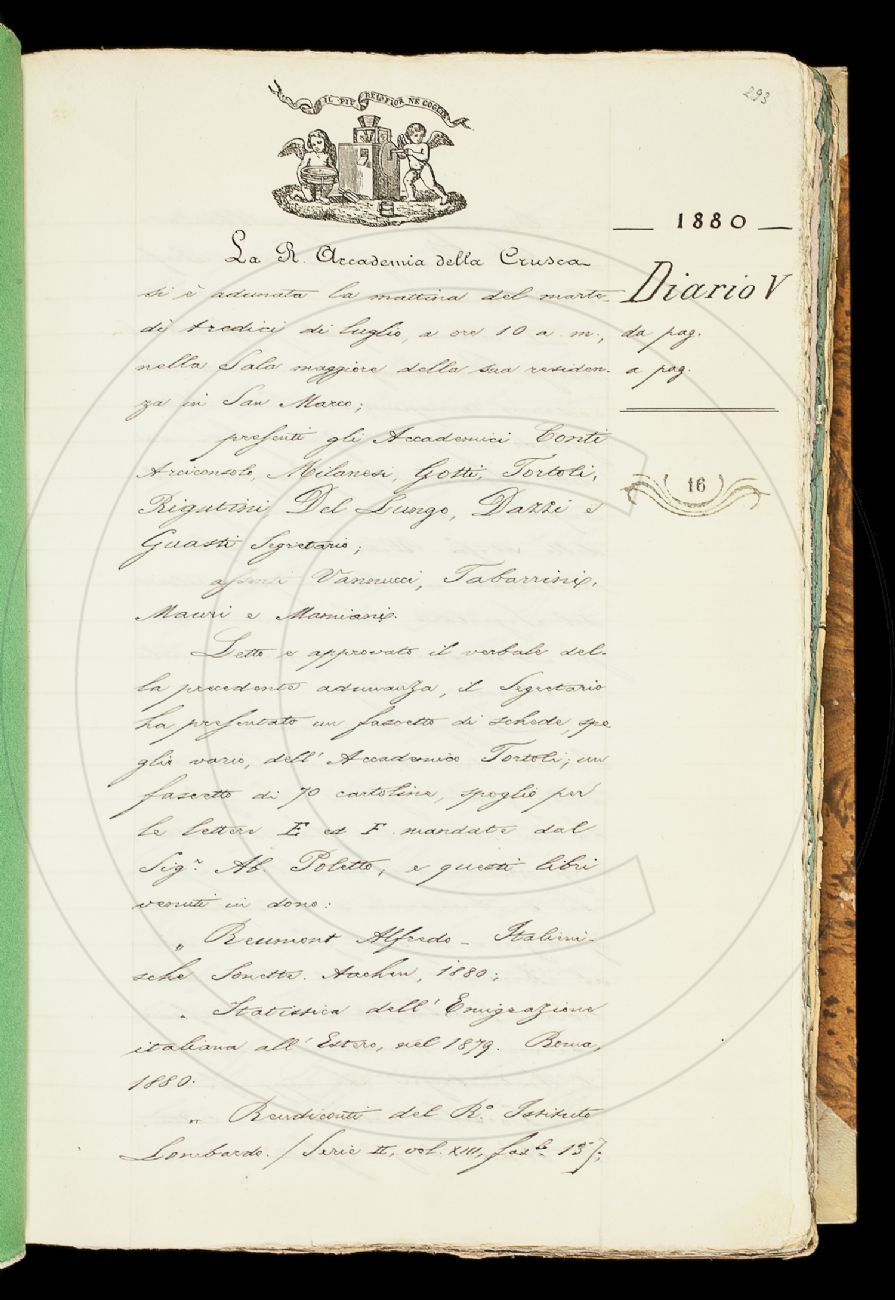 293
IL PIÙ BEL FIOR NE COGLIE
— 1880 —
Diario V
da pag.
a pag.
16
La R. Accademia della Crusca
si è adunata la mattina del marte
dì tredici di luglio, a ore 10 a. m.,
nella Sala maggiore della sua residen-
za in San Marco;
presenti gli Accademici Conti
Arciconsolo, Milanesi, Gotti, Tortoli,
Rigutini, Del Lungo, Dazzi e
Guasti Segretario;
assenti Vannucci, Tabarrini,
Mauri e Mamiani.
Letto e approvato il verbale del-
la precedente adunanza, il Segretario
ha presentato un fascetto di schede, spo
glio vario, dell' Accademico Tortoli; un
fascetto di 70 cartoline, spoglio per
le lettere E ed F mandate dal
Sigr. Ab. Poletto; e questi libri
venuti in dono:
„ Reumont Alfredo - Italieni-
sche Sonette. Aachen, 1880;
„ Statistica dell' Emigrazione
italiana all' Estero, nel 1879. Roma,
1880.
„ Rendiconti del Ro. Istituto
Lombardo. (Serie II, vol. XIII, fasc. 13);